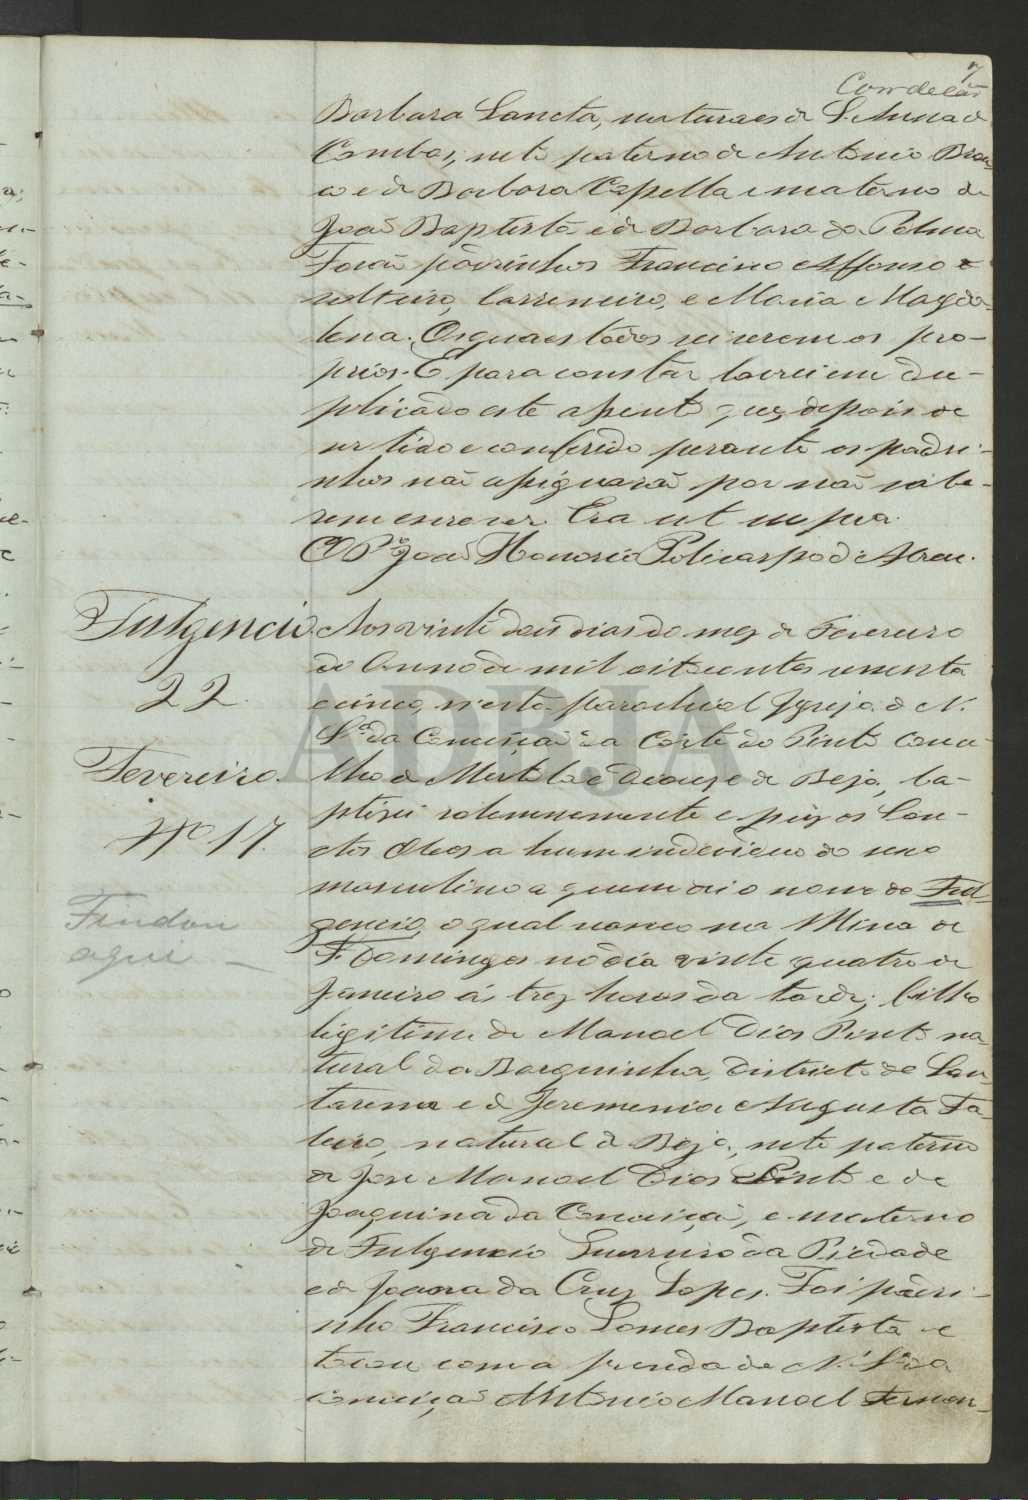 7
Barbara Sancta, naturaes de S. Anna de
Cambas; neto paterno de Antonio Bran-
co e de Barbara Capella e materno de
João Baptista e de Barbara da Palma
Forão padrinhos Francisco Affonso
solteiro, carreiro, e Maria Magda-
lena. Os quaes todos sei serem os pro-
prios. E para constar lavrei em du-
plicado este assento que, depois de
ser lido e conferido perante os padri-
nhos não assignarão por não sabe-
rem escrever. Era ut supra.
O P.º João Honorio Policarpo de Abreu.
Fulgencio
22
Fevereiro.
Nº 17.
Findou
aqui —
Aos vinte dous dias do mez de Fevereiro
do Anno de mil oitocentos sessenta
e cinco, n'esta parochial Igreja de N.
Sª da Conceição da Corte do Pinto Conce-
lho de Mertola e Diocese de Beja, ba-
ptizei solemnemente e puz os San-
ctos Oleos a hum individuo do sexo
masculino a quem dei o nome de Ful-
gencio, o qual nasceu na Mina de
S. Domingos no dia vinte quatro de
Janeiro ás trez horas da tarde; filho
legitimo de Manoel Dias Pinto na-
tural da Barquinha, Districto de San-
tarem e de Jeremenia Augusta Fa-
leiro, natural de Beja, neto paterno
de José Manoel Dias Pinto e de
Joaquina da Conceição, e materno
de Fulgencio Guerreiro da Piedade
e de Joanna da Cruz Lopes. Foi padri-
nho Francisco Gomes Baptista e
tocou com a prenda de N. Sª da
Conceição Antonio Manoel Fernan-
ADBJA